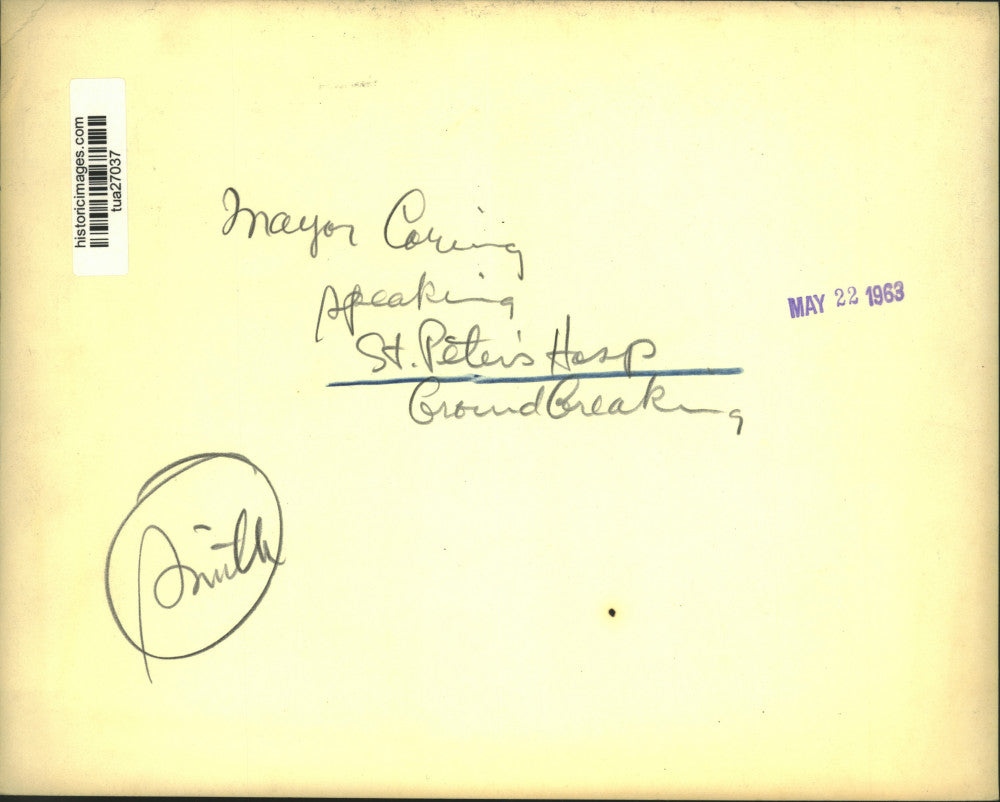 historicimages.com
tua27037
Mayor Corning
speaking
St. Peter's Hosp
Groundbreaking
MAY 22 1963
Smith